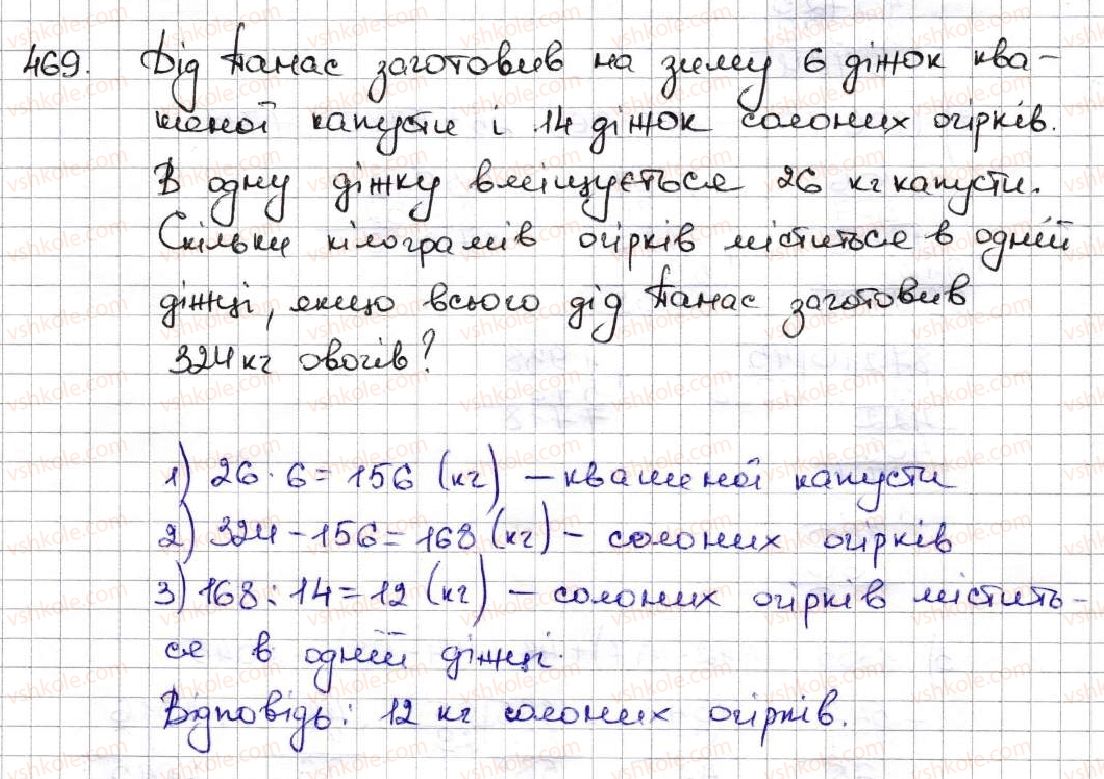 469. Дід Панас заготовив на зиму 6 діжок ква-
шеної капусти і 14 діжок солоних огірків.
В одну діжку вміщується 26 кг капусти.
Скільки кілограмів огірків міститься в одній
діжці, якщо всього дід Панас заготовив
324 кг овочів?
1) 26 · 6 = 156 (кг) – квашеної капусти
2) 324 – 156 = 168 (кг) – солоних огірків
3) 168 : 14 = 12 (кг) – солоних огірків містить-
ся в одній діжці.
Відповідь: 12 кг солоних огірків.
vshkole.com